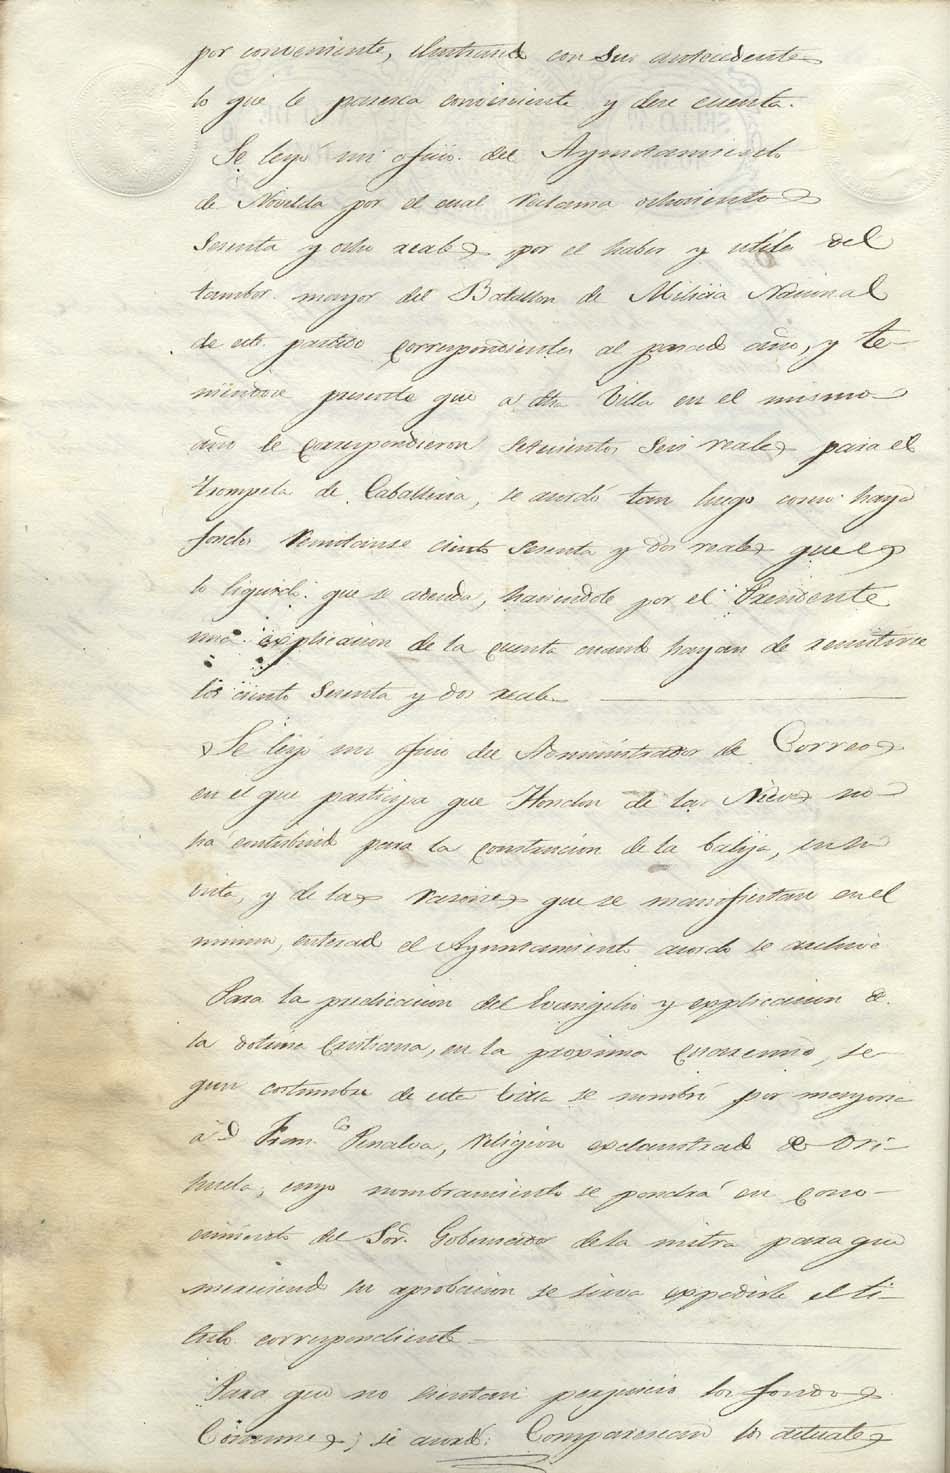 por conveniente, ilustrando con sus antecedentes
lo que le paresca conveniente y dese cuenta.
Se leyó un oficio del Ayuntamiento
de Novelda por el cual reclama ochocientos
sesenta y ocho reales por el haber y utiles del
tambor mayor del Batallon de Milicia Nacional
de este partido correspondientes al pasado año, y te-
niendose presente que a dha Villa en el mismo
año le correspondieron setecientos seis reales para el
trompeta de Caballeria, se acordó tan luego como haya
fondos remitanse ciento sesenta y dos reales que es
lo liquido que se adeuda, haciendole por el Presidente
una explicacion de la cuenta cuando hayan de remitirse
los ciento sesenta y dos reales
Se leyó un oficio del Administrador de Correos
en el que participa que Hondon de las Nieves no
há contribuido para la construccion de la balija, en su
vista, y de las razones que se manifiestan en el
mismo, enterado el Ayuntamiento acordo se archive
Para la predicacion del Evangelio y explicacion de
la dotrina Cristiana, en la proxima cuaresma, se-
gun costumbre de esta Villa se nombró por mayoria
a D. Franco. Penalva, religioso exclaustrado de Ori-
huela, cuyo nombramiento se pondrá en cono-
cimiento del Sor. Gobernador de la mitra para que
mereciendo su aprobacion se sirva expedirle el ti-
tulo correspondiente
Para que no sientan perjuicio los fondos
Comunes, se acordó: Comparescan los actuales